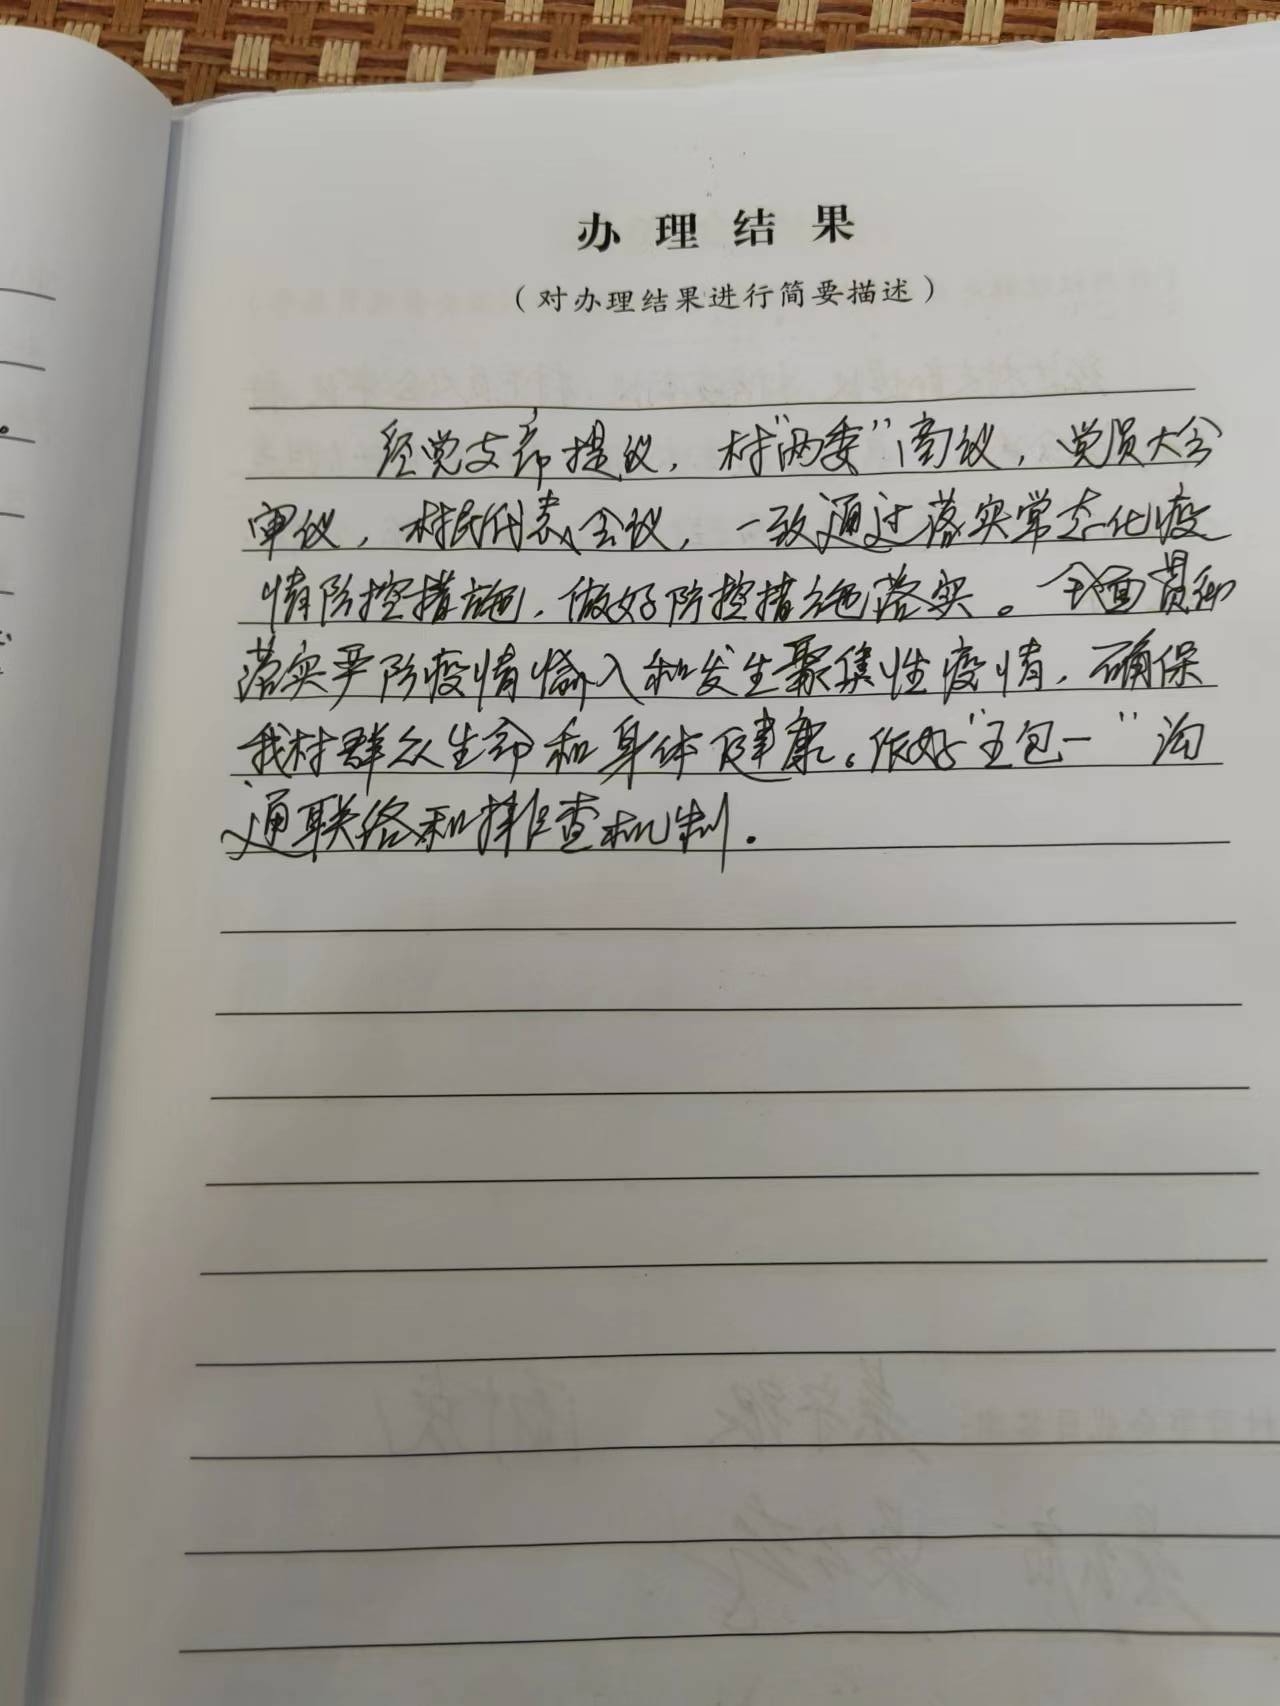 办理结果
（对办理结果进行简要描述）
经党支部提议，村“两委”商议，党员大会
审议，村民代表会议，一致通过落实常态化疫
情防控措施，做好防控措施落实。全面贯彻
落实严防疫情输入和发生聚集性疫情，确保
我村群众生命和身体健康。做好“五包一”沟
通联络和排查机制。